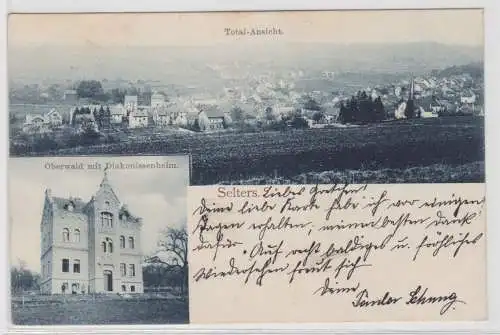 Total-Ansicht.
Oberwald mit Diakonissenheim.
Selters. Liebes Gretchen!
Deine liebe Karte habe ich vor einigen
Tagen erhalten, meinen besten Dank
dafür. Auf recht baldiges u. fröhliches
Wiedersehen freut sich
Deine